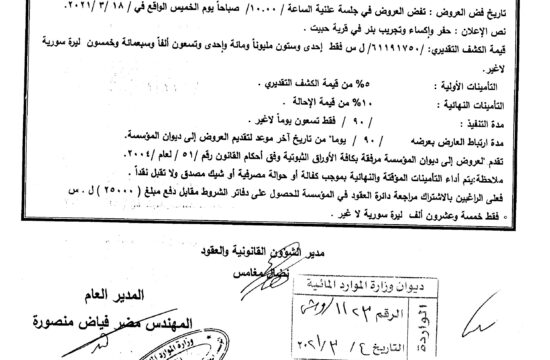 تاريخ فض العروض : تفض العروض في جلسة علنية الساعة /١٠.٠٠/ صباحاً يوم الخميس الواقع في / ١٨ / ٣ /٢٠٢١.
نص الإعلان : حفر وإكساء وتجريب بئر في قرية حبيت .
قيمة الكشف التقديري: /٦١١٩١٧٥٠/ ل س فقط إحدى وستون مليوناً ومائة وإحدى وتسعون ألفاً وسبعمائة وخمسون ليرة سورية
لاغير.
التأمينات الأولية : ٥% من قيمة الكشف التقديري .
التأمينات النهائية : ١٠% من قيمة الإحالة .
مدة التنفيذ : / ٩٠ / فقط تسعون يوماً لاغير .
مدة ارتباط العارض بعرضه / ٩٠ / يوماً من تاريخ آخر موعد لتقديم العروض إلى ديوان المؤسسة.
تقدم العروض إلى ديوان المؤسسة مرفقة بكافة الأوراق الثبوتية وفق أحكام القانون رقم /٥١ /لعام ٢٠٠٤.
ملاحظة:يتم أداء التأمينات المؤقتة والنهائية بموجب كفالة أو حوالة مصرفية أو شيك مصدق ولا تقبل نقداً .
فعلى الراغبين بالاشتراك مراجعة دائرة العقود في المؤسسة للحصول على دفاتر الشروط مقابل دفع مبلغ ( ٢٥٠٠٠ ) ل . س
فقط خمسة وعشرون ألف ليرة سورية لا غير .
مدير الشؤون القانونية والعقود
نضال مغامس
المدير العام
المهندس مضر فياض منصورة
ديوان وزارة الموارد المائية
الواردة
الرقم ١١٢٣
التاريخ ٤ / ٣ / ٢٠٢١
وزارة الموارد